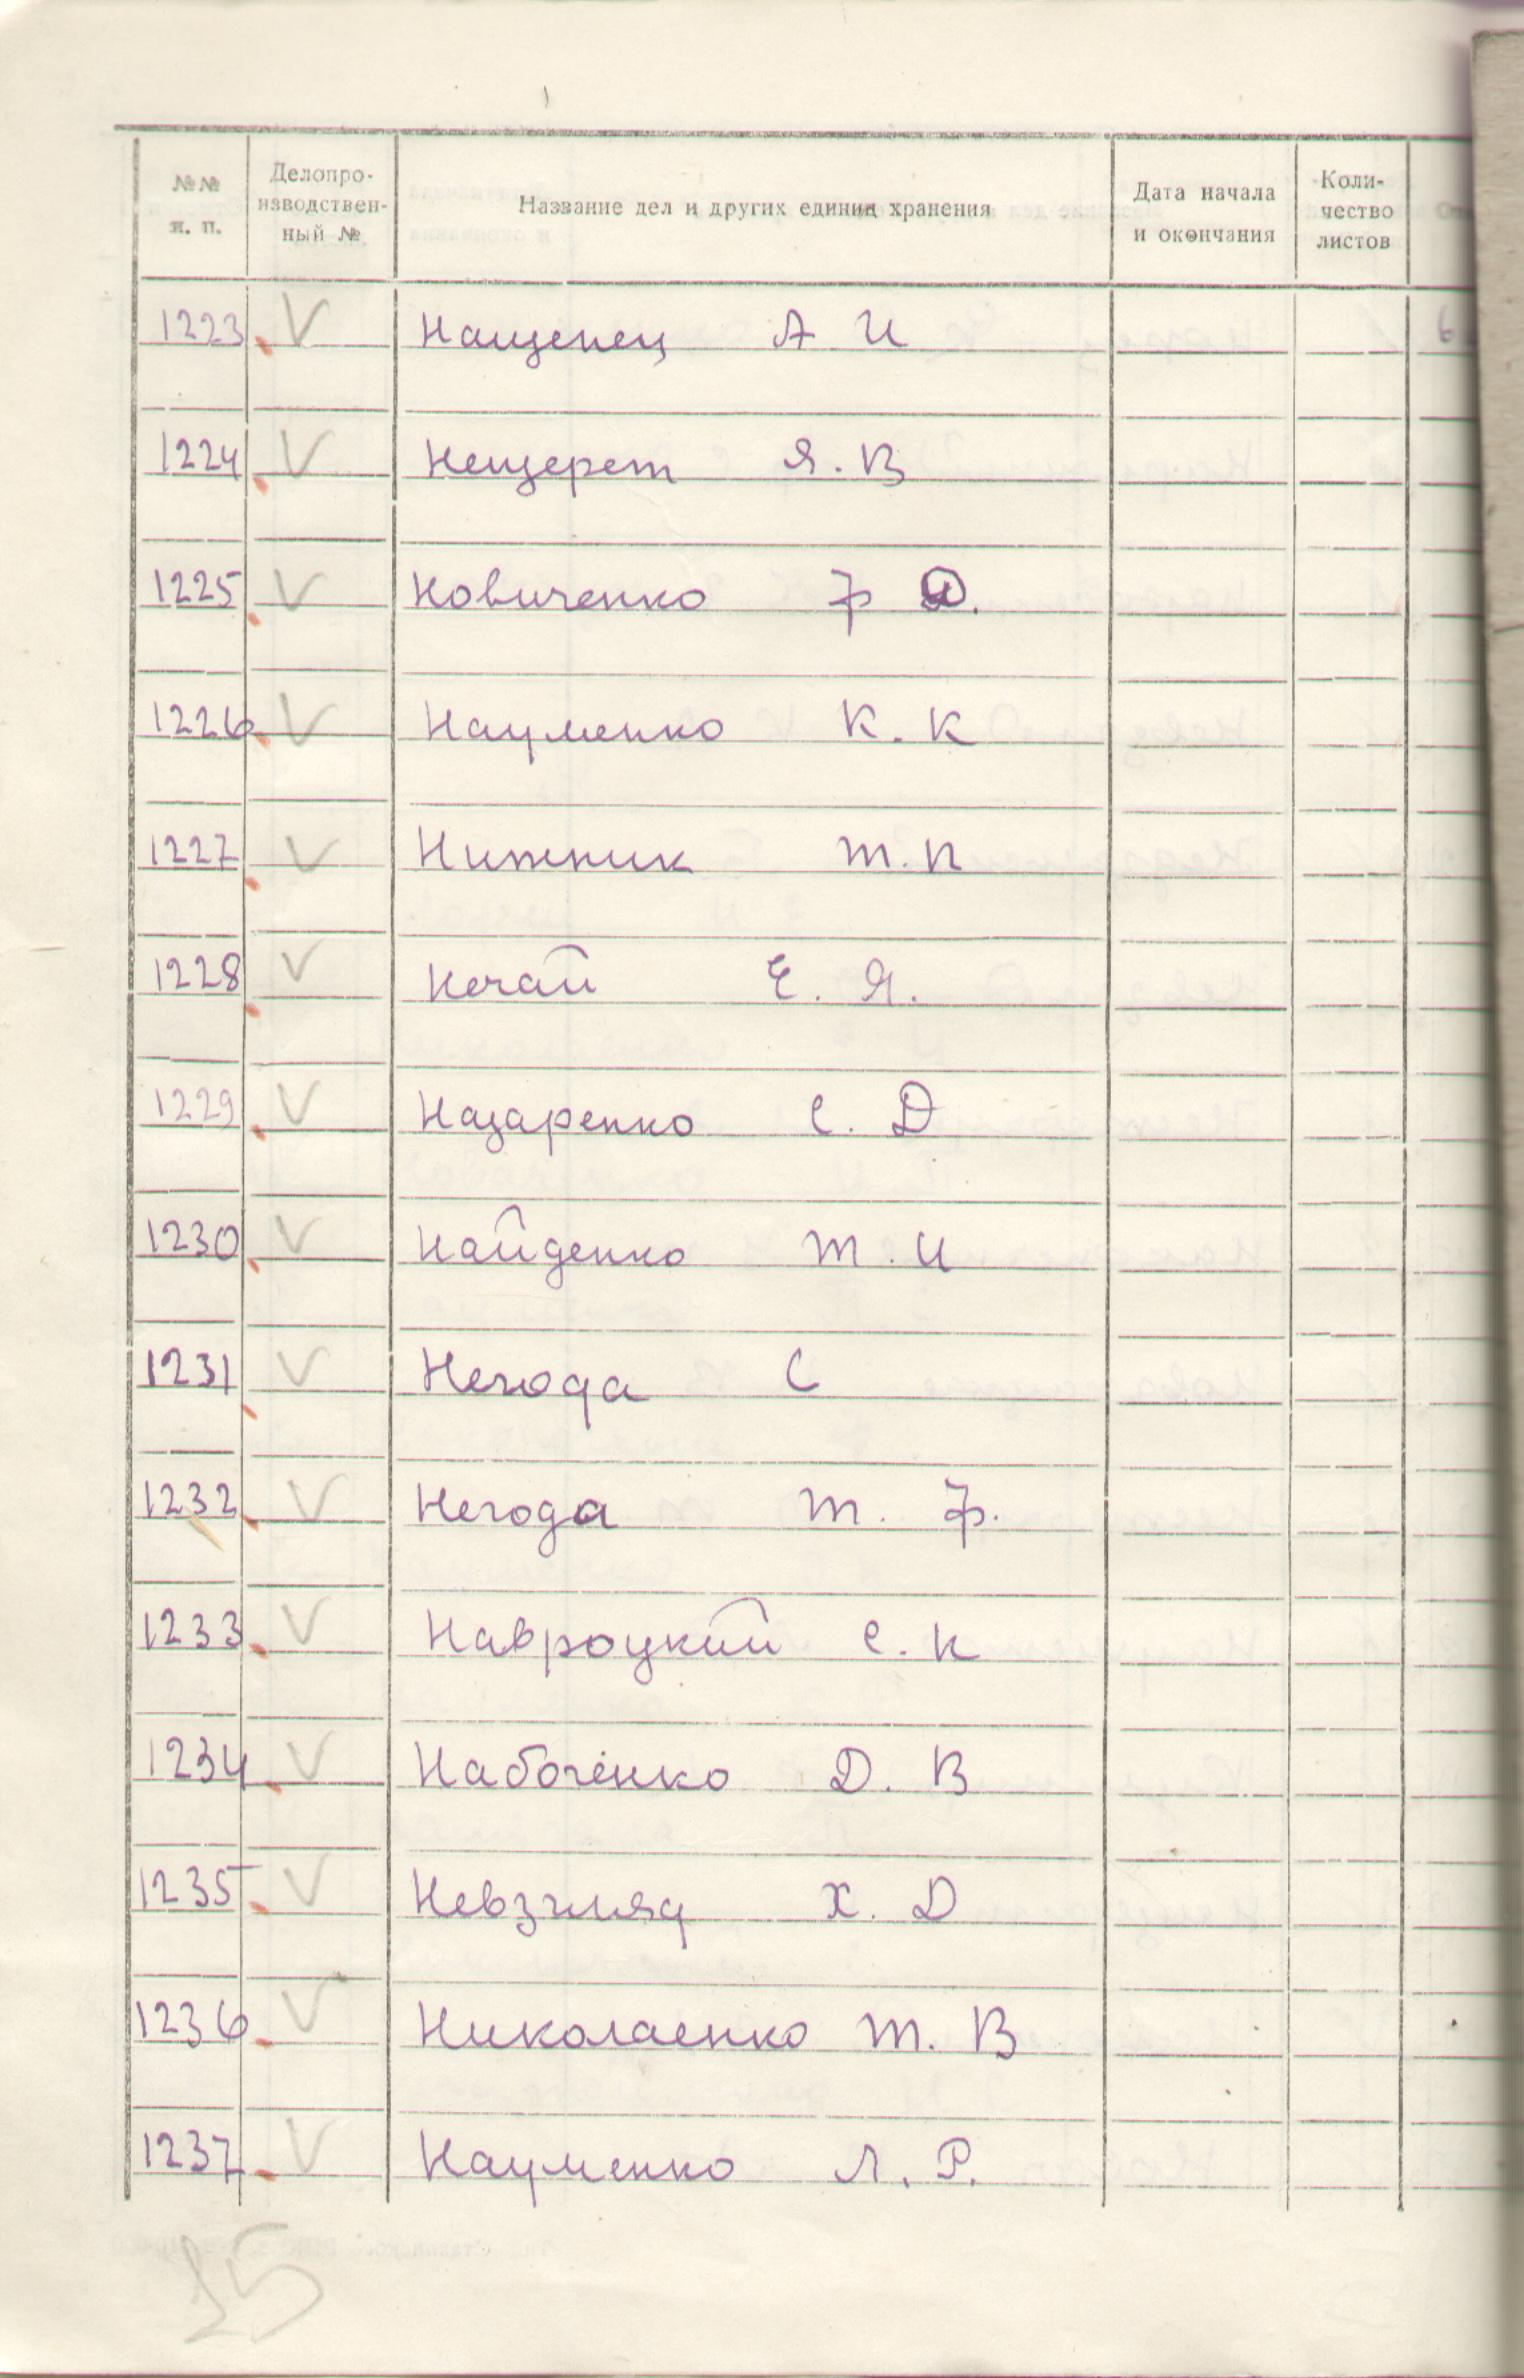 №№ п. п. Делопроизводственный № Название дел и других единиц хранения Дата начала и окончания Количество листов
1223 V Нащепец А И
1224 V Нещерет Я. В
1225 V Новиченко Ф
1226 V Науменко К. К
1227 V Нитник Т. П
1228 V Нечай Е. Я.
1229 V Назаренко С. Д
1230 V Найденко Т. И
1231 V Негода С
1232 V Негода Т. Ф.
1233 V Навроцкий С. К
1234 V Набоченко Д. В
1235 V Невзгляд Х. Д
1236 V Николаенко Т. В
1237 V Науменко Л. Р.
15